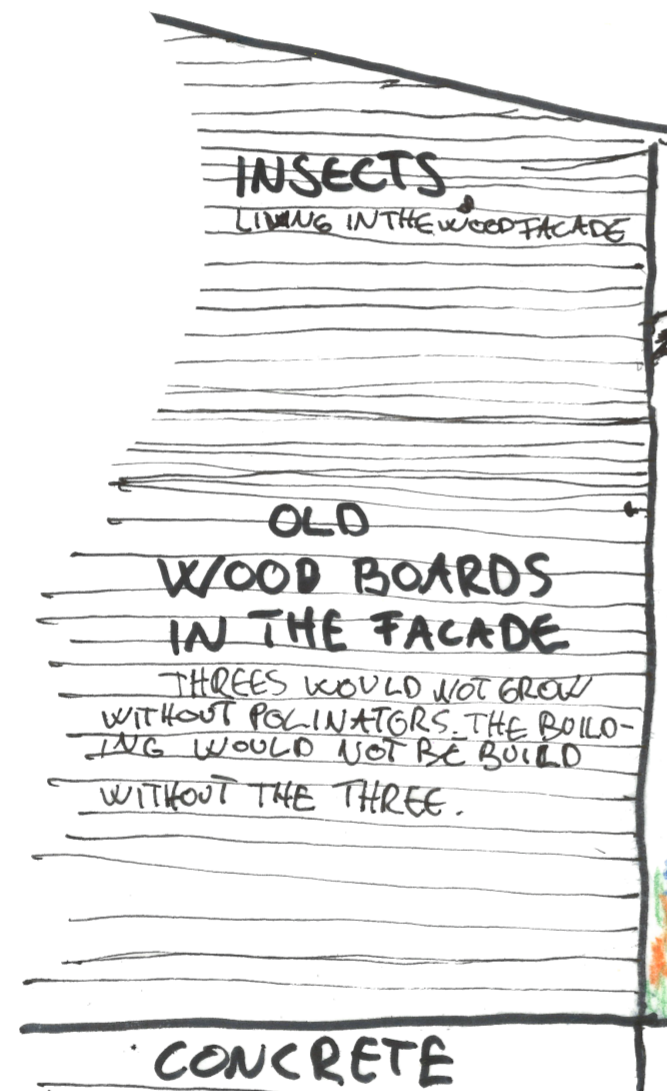 INSECTS
LIVING IN THE WOOD FACADE
OLD
WOOD BOARDS
IN THE FACADE
THREES WOULD NOT GROW
WITHOUT POLINATORS. THE BUILD-
ING WOULD NOT BE BUILD
WITHOUT THE THREE.
CONCRETE